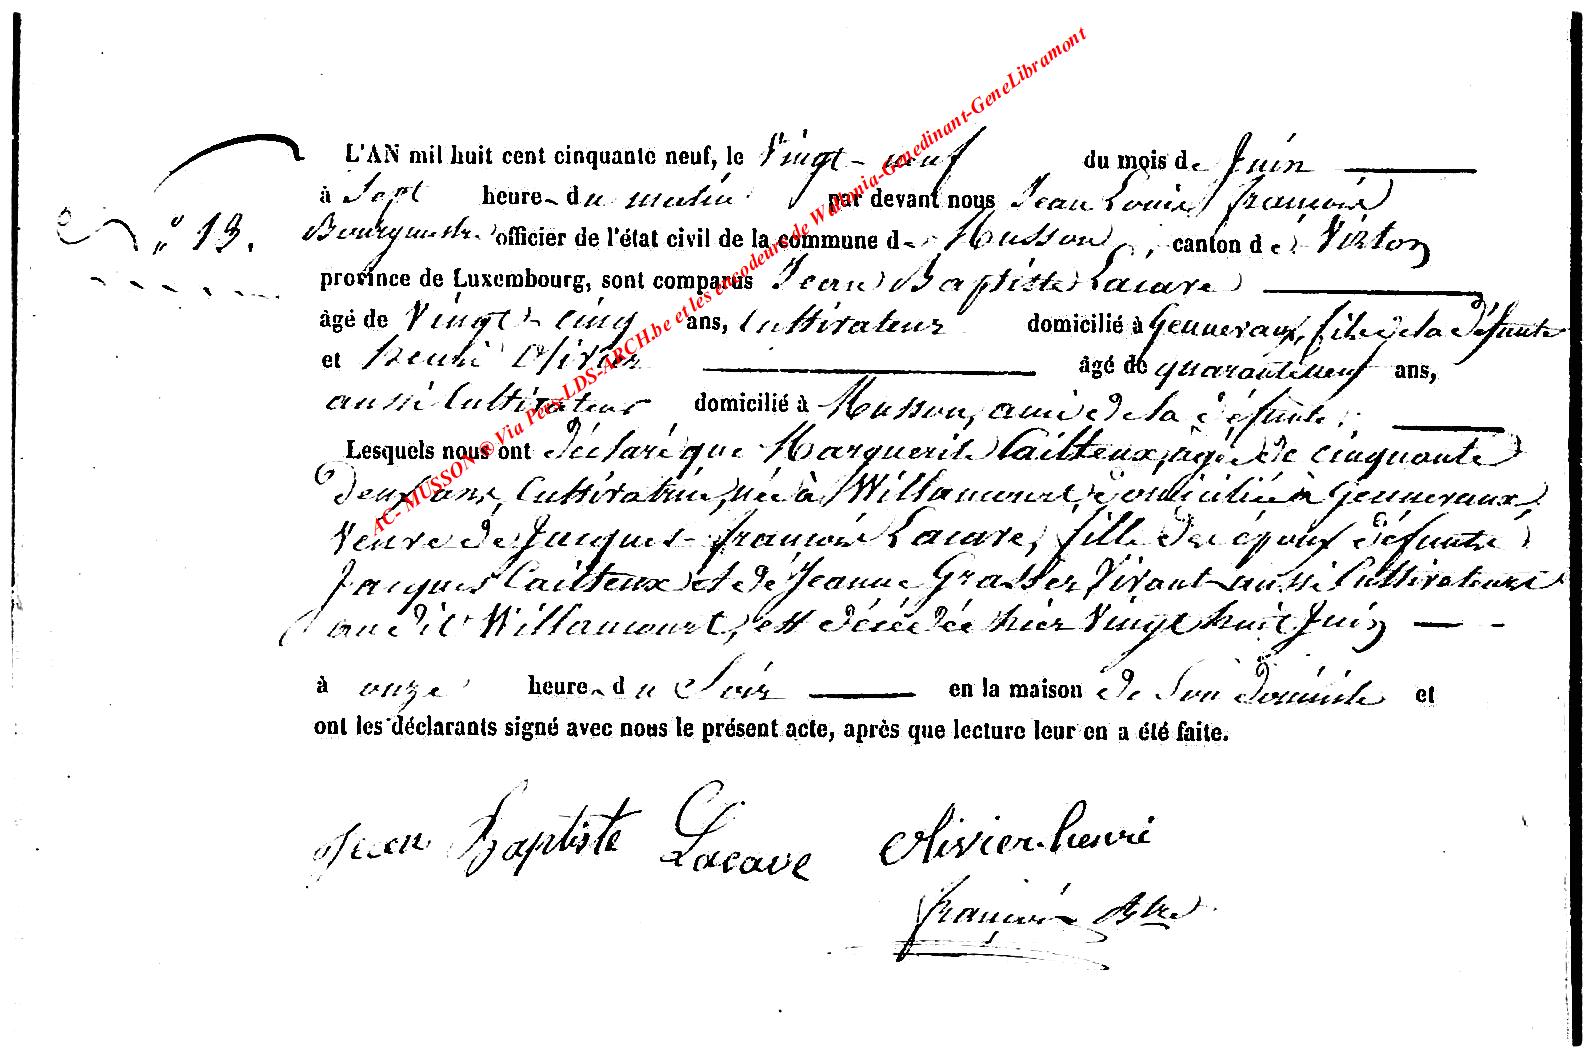 L'AN mil huit cent cinquante neuf, le Vingt-neuf du mois de Juin
à Sept heure du matin par devant nous Jean Louis françois
N° 13. Bourgmestre officier de l'état civil de la commune de Musson, canton de Virton
province de Luxembourg, sont comparus Jean Baptiste Lacave
âgé de Vingt-cinq ans, Cultivateur domicilié à Gennevaux, fils de la défunte
et henri Olivier âgé de quarante neuf ans,
aussi Cultivateur domicilié à Musson, ami de la défunte;
Lesquels nous ont déclaré que Marguerite Cailteux, âgée de cinquante
deux ans, Cultivatrice, née à Willancourt, domiciliée à Gennevaux,
Veuve de Jacques-françois Lacave, fille des époux défunts
Jacques Cailteux et de Jeanne Grasser Vivant aussi Cultivateurs
au dit Willancourt, est décédée hier Vingt huit Juin
à onze heure du Soir en la maison de Son domicile et
ont les déclarants signé avec nous le présent acte, après que lecture leur en a été faite.
Jean Baptiste Lacave olivier henri
françois
AC- MUSSON ® Via Pers-LDS-ARCH.be et les encodeurs de Wallonia-Genedinant-GeneLibramont